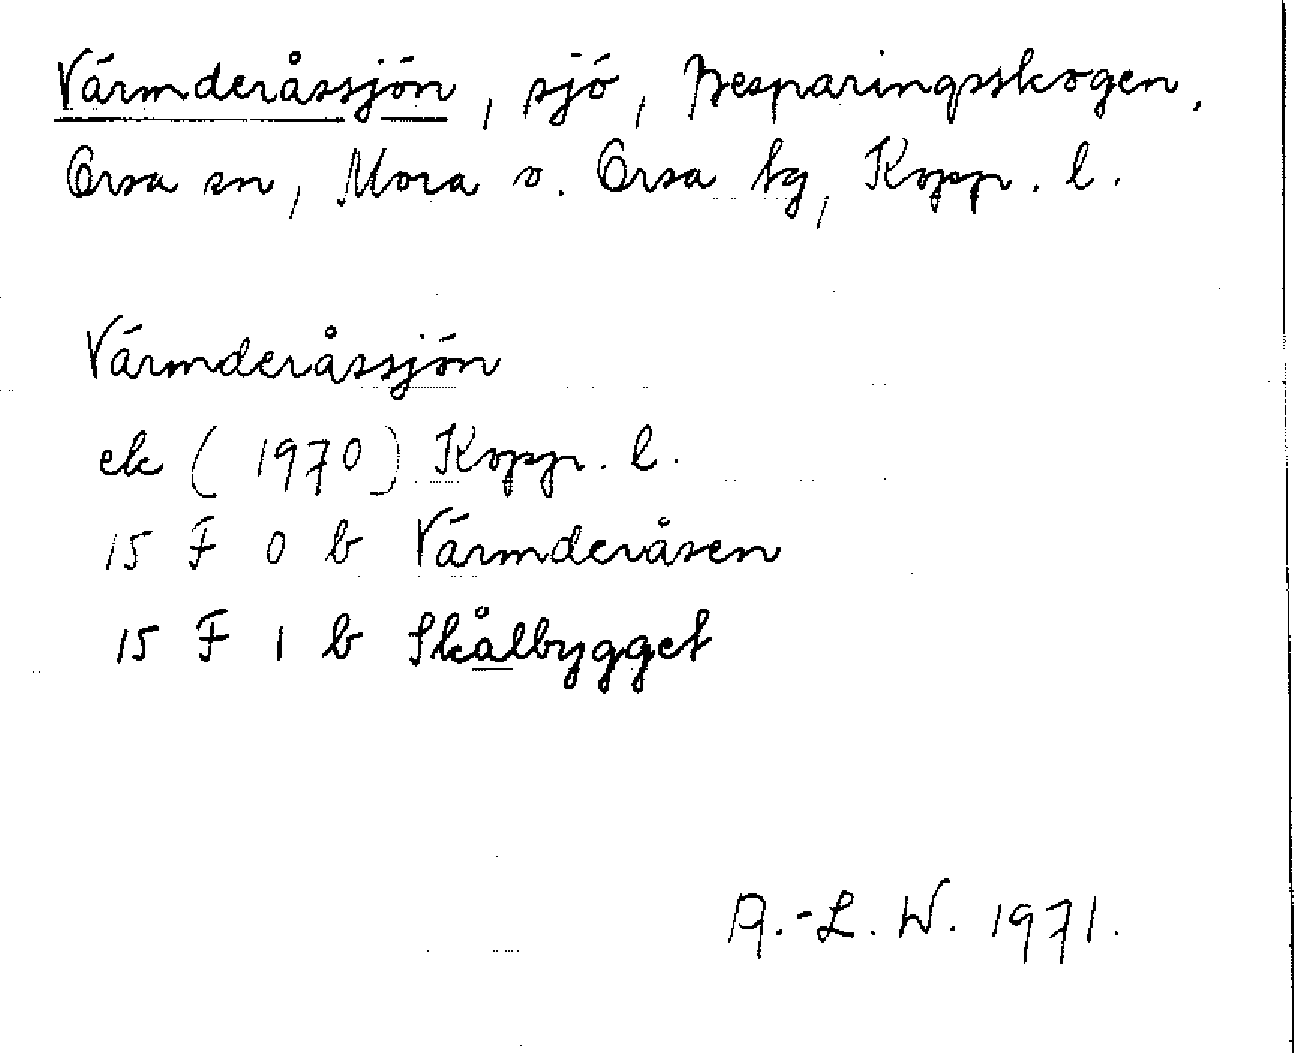 Värmderåssjön, sjö, Besparingsskogen,
Orsa sn, Mora o. Orsa tg, Kopp. l.
Värmderåssjön
ek (1970) Kopp. l.
15 F 0 b Värmderåsen
15 F 1 b Skålbygget
A.-L. W. 1971.